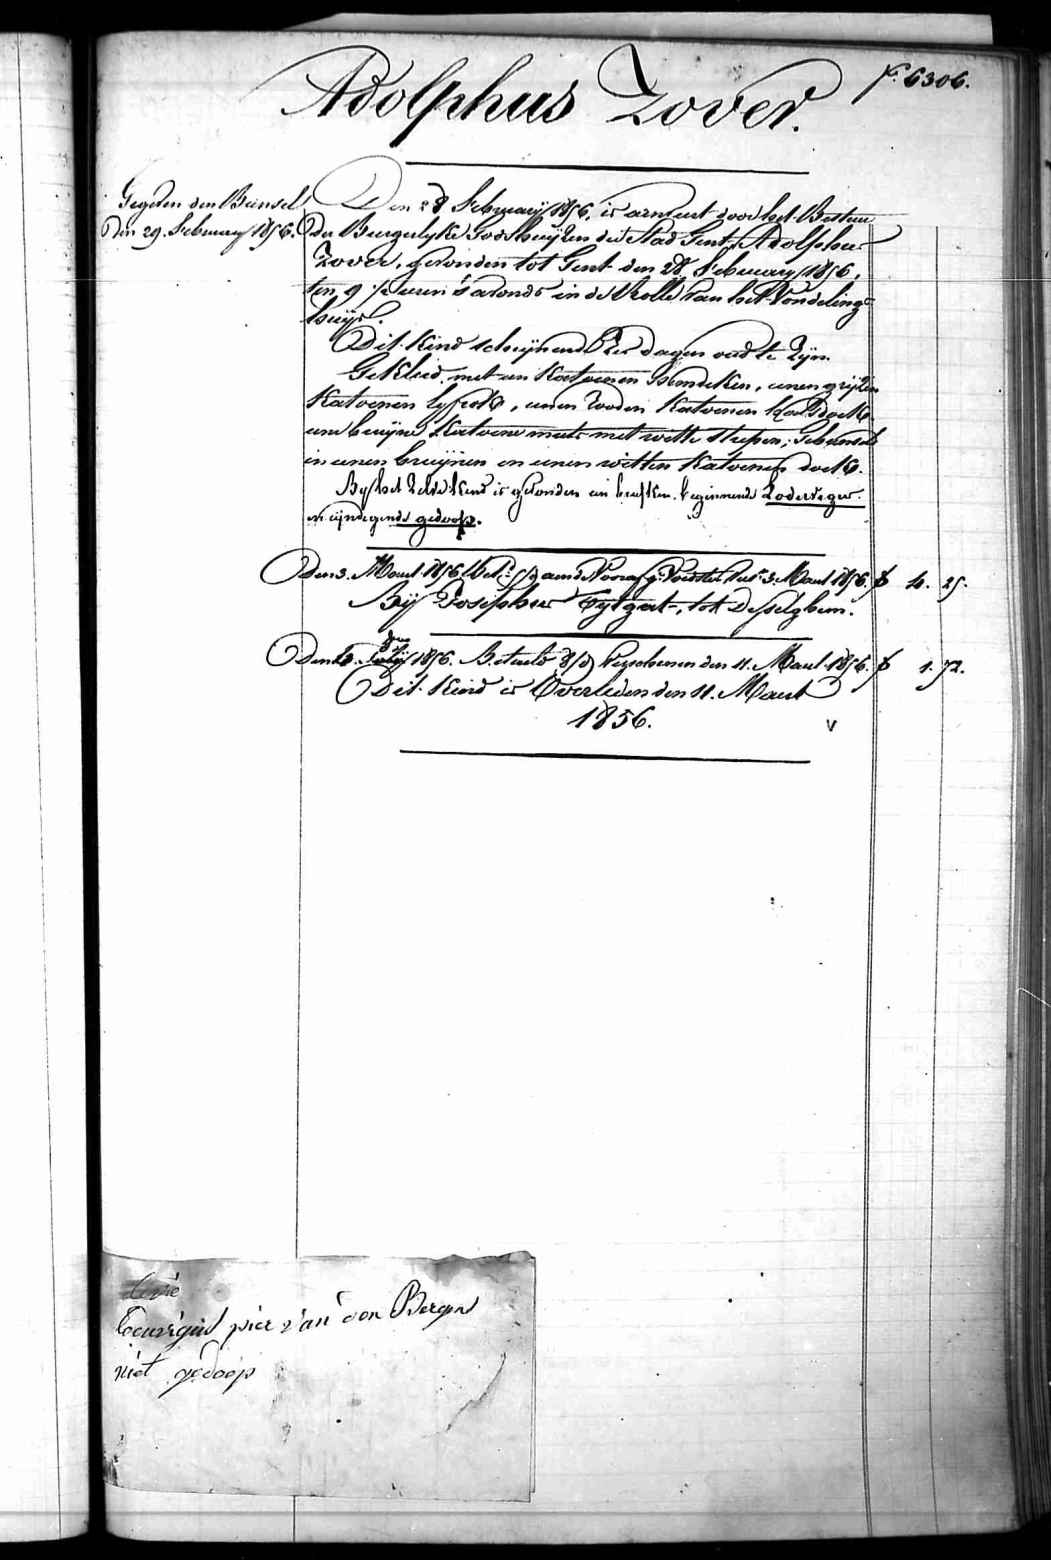 N.º 6306.
Adolphus Zover.
Gegeven den Bunsel
den 29. February 1856.
Den 28 February 1856, is aenveert door het Bestuer
der Burgerlyke Godshuyzen der Stad Gent, Adolphus
Zover, gevonden tot Gent den 28 February 1856,
ten 9 ½ uren s'avonds in de Rolle van het Vondeling-
huys.
Dit Kind schynend dagen oud te Zyn.
Gekleed met een Katoenen Hemdeken, eenen gryzen
Katoenen lyfrok, eenen Rooden Katoenen Halsdoek,
eene bruyne Katoene muts met witte strepen; Gebunsel
in eenen bruynen en eenen witten Katoenen doek.
By het Zelve Kind is gevonden een briefken beginnende Lodewger
en eyndegende gedoop.
Den 3. Maert 1856 aend Voorafg. tot 3. Maert 1856. f 4. 25.
Bij Josephus Eylgat, tot Desselghem.
Den July 1856. Betaeld Verschenen den 11. Maert 1856. f 1. 72.
Dit Kind is Overleden den 11. Maert
1856.
V
pier van den Bergen
niet gedoop